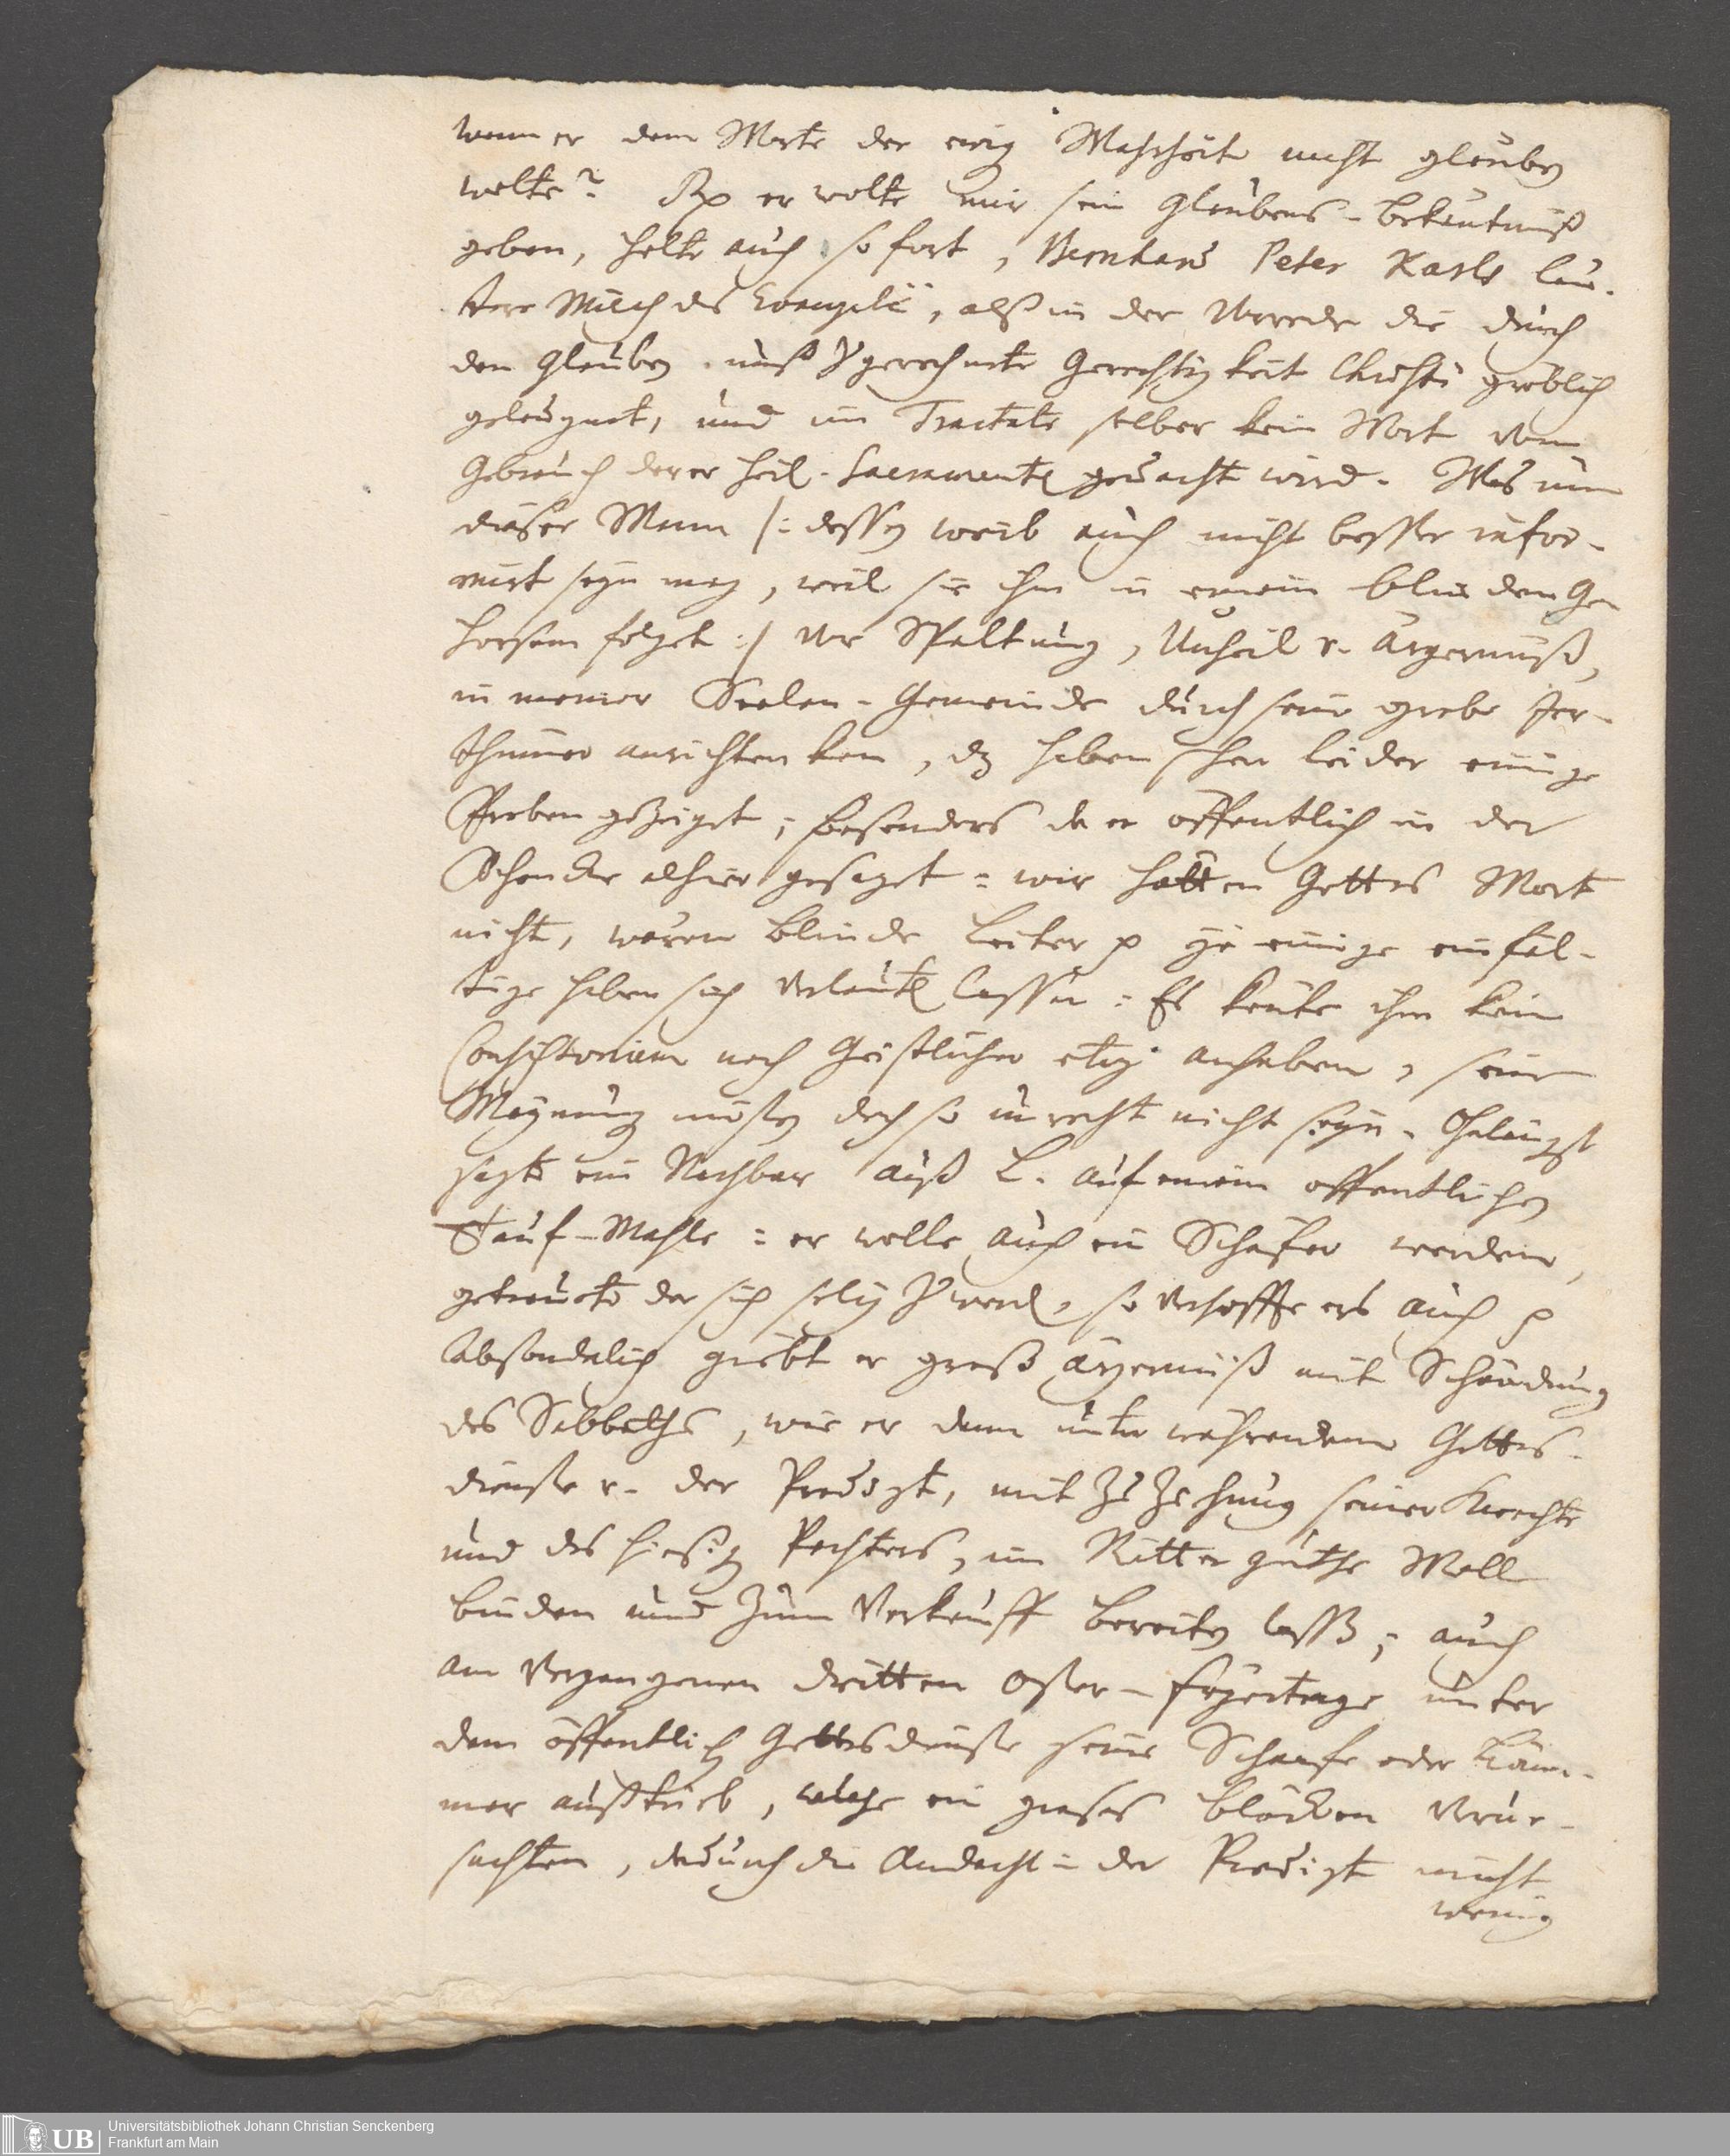 wenn er dem Worte der ewig Wahrheit nicht gleuben
wolte? Rp er wolte mir sein Glaubens-bekäntnuß
geben, holte auch so fort, Bernhard Peter Karls lau-
tere Milch des Evangelii, alß in der Vorrede die durch
den Glauben unß zugerechnete Gerechtigkeit Christi gröblich
geleugnet, und im Tractate selber kein Wort vom
Gebrauch derer heil. Sacramente gedacht wird. Was nun
dieser Mann /: dessen weib auch nicht besser infor-
mirt seyn mag, weil sie ihm in einem blinden Ge-
horsam folget :/ vor Spaltung, Unheil v. Ärgernuß,
in meiner Seelen-Gemeinde durch seine grobe Irr-
thümer anrichten kan, dz haben schon leider einige
Proben gezeiget; besonders da er öffentlich in der
Schencke alhier gesaget: wir hätten Gottes Wort
nicht, wären blinde Leiter p ja einige einfäl-
tige haben sich verlauten lassen: Es könte ihm kein
Consistorium noch Geistlicher etwz anhaben, seine
Meynung müsten doch so unrecht nicht seyn. Ohnlängst
sagte ein Nachbar auß L. auf einem öffentlichen
Tauf-Mahle: er wolle auch ein Schäfer werden,
getraute der sich selig zu werden, so verhoffte ers auch p
Absonderlich giebt er groß ärgernüß mit Schändung
des Sabbaths, wie er denn unter währendem Gottes-
dienste v. der Predigt, mit Zuziehung seiner Knechte
und des hiesigen Pachters, im Ritterguthe Woll
binden und zum Verkauff bereiten lassen; auch
am vergangenen dritten Oster-feyertage unter
dem öffentlichen Gottesdienste seine Schaafe oder Läm-
mer außtrieb, welche ein großes blöcken verur-
sachten, dadurch die Andacht in der Predigt nicht
wenig
Universitätsbibliothek Johann Christian Senckenberg
Frankfurt am Main
UB